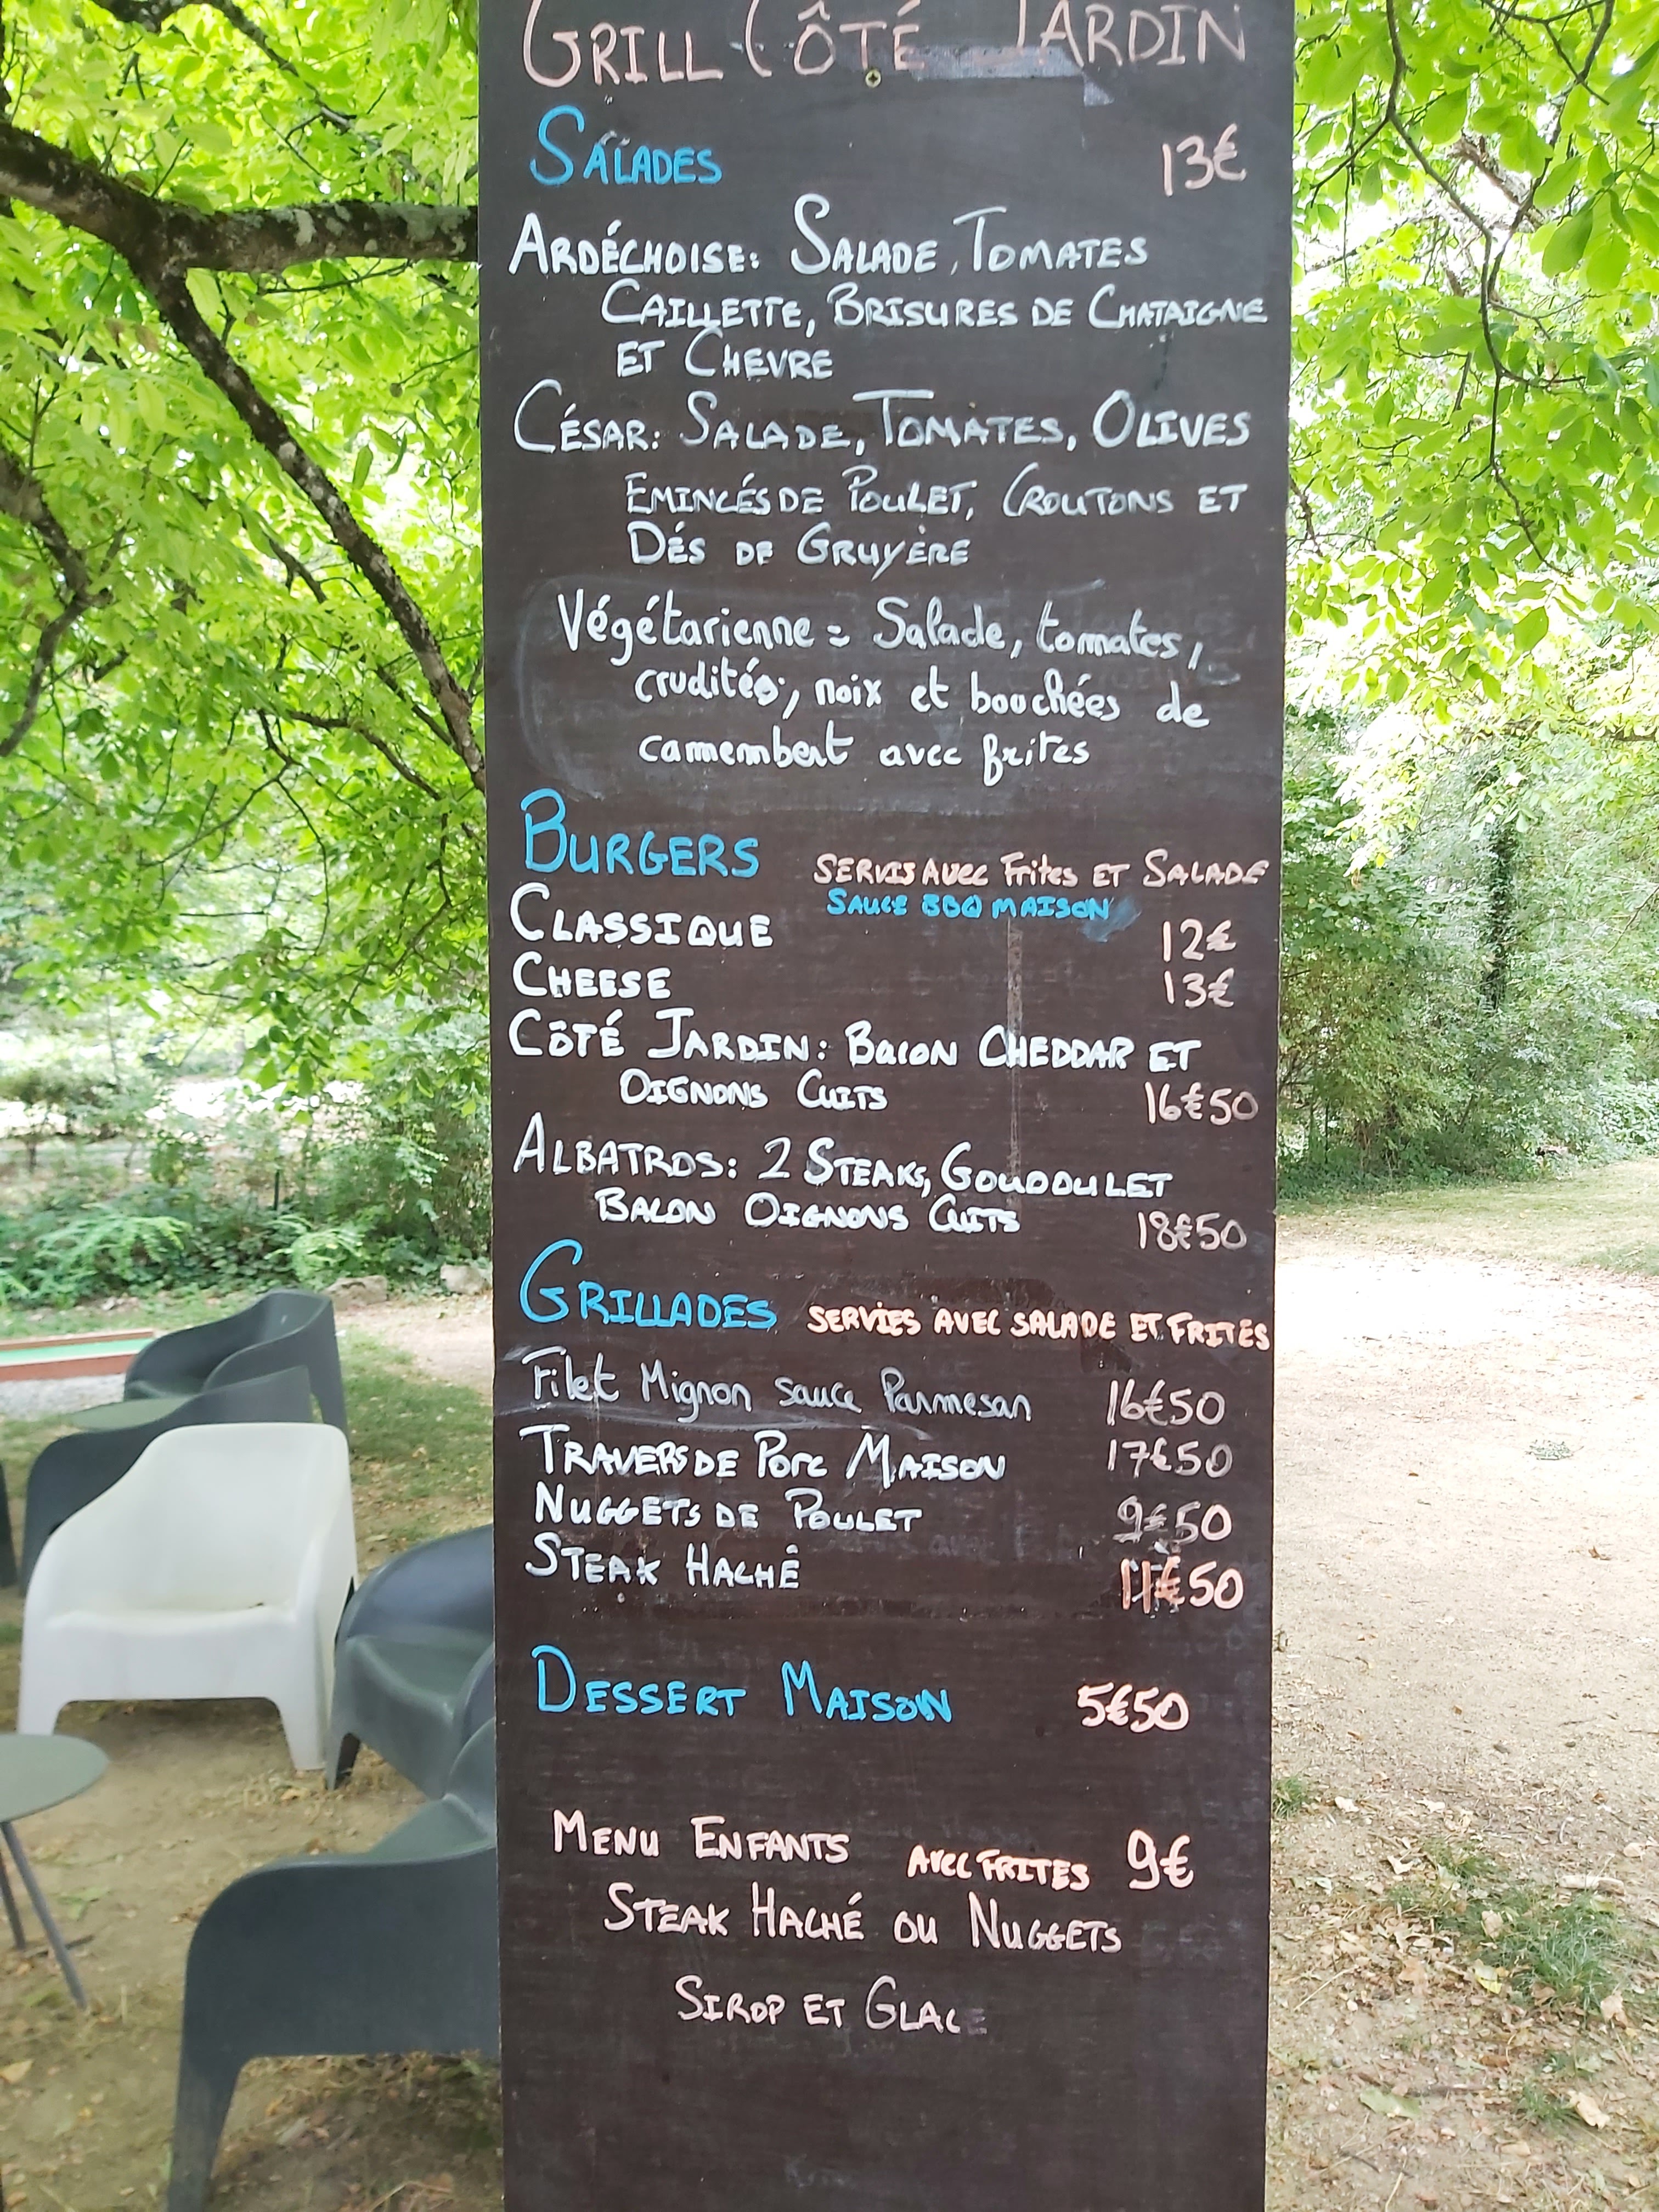 GRILL CÔTÉ JARDIN
SALADES 13€
ARDÉCHOISE: SALADE, TOMATES
CAILLETTE, BRISURES DE CHATAIGNE
ET CHEVRE
CÉSAR: SALADE, TOMATES, OLIVES
EMINCÉS DE POULET, CROUTONS ET
DÉS DE GRUYÈRE
Végétarienne = Salade, tomates,
crudités, noix et bouchées de
camembert avec frites
BURGERS SERVIS AVEC Frites ET SALADE
SAUCE BBQ MAISON
CLASSIQUE 12€
CHEESE 13€
CÔTÉ JARDIN: BACON CHEDDAR ET
OIGNONS CUITS 16€50
ALBATROS: 2 STEAKS, GOUDOULET
BACON OIGNONS CUITS 18€50
GRILLADES SERVIES AVEC SALADE ET FRITES
Filet Mignon sauce Parmesan 16€50
TRAVERS DE PORC MAISON 17€50
NUGGETS DE POULET 9€50
STEAK HACHÉ 11€50
DESSERT MAISON 5€50
MENU ENFANTS AVEC FRITES 9€
STEAK HACHÉ OU NUGGETS
SIROP ET GLACE